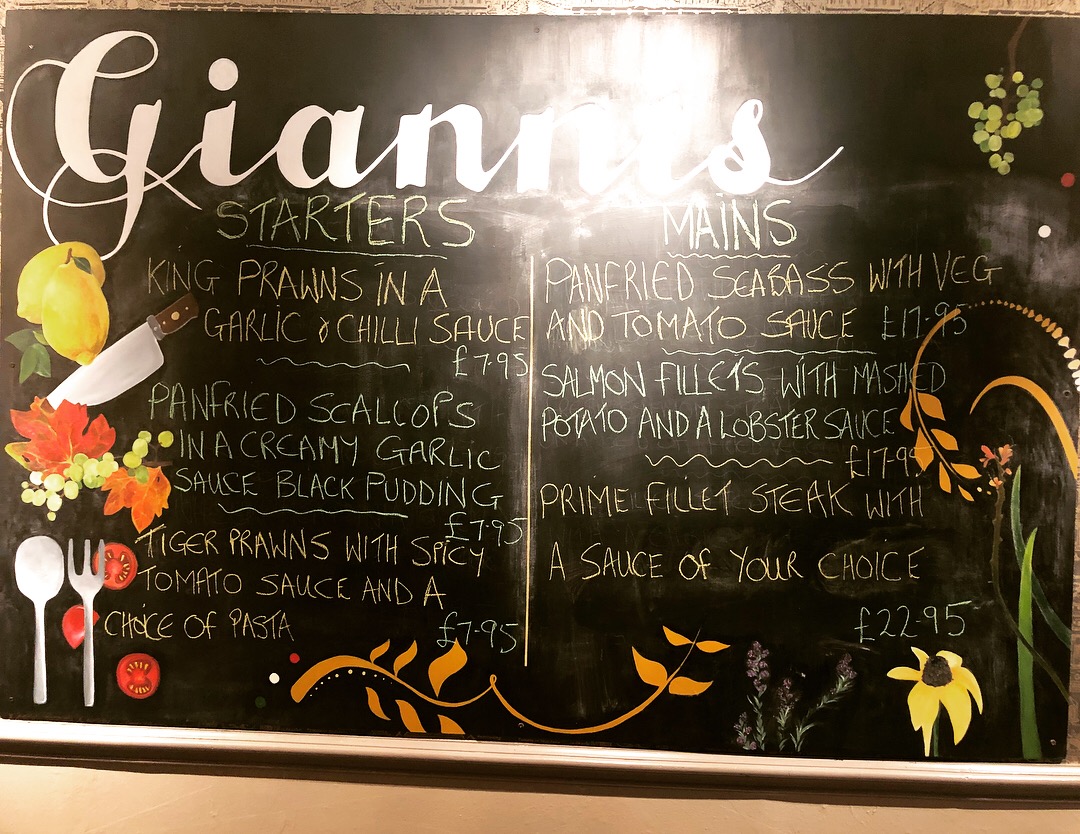 Giannis
STARTERS
KING PRAWNS IN A
GARLIC & CHILLI SAUCE
£7.95
PANFRIED SCALLOPS
IN A CREAMY GARLIC
SAUCE BLACK PUDDING
£7.95
TIGER PRAWNS WITH SPICY
TOMATO SAUCE AND A
CHOICE OF PASTA
£7.95
MAINS
PANFRIED SEABASS WITH VEG
AND TOMATO SAUCE £17.95
SALMON FILLETS WITH MASHED
POTATO AND A LOBSTER SAUCE
£17.95
PRIME FILLET STEAK WITH
A SAUCE OF YOUR CHOICE
£22.95